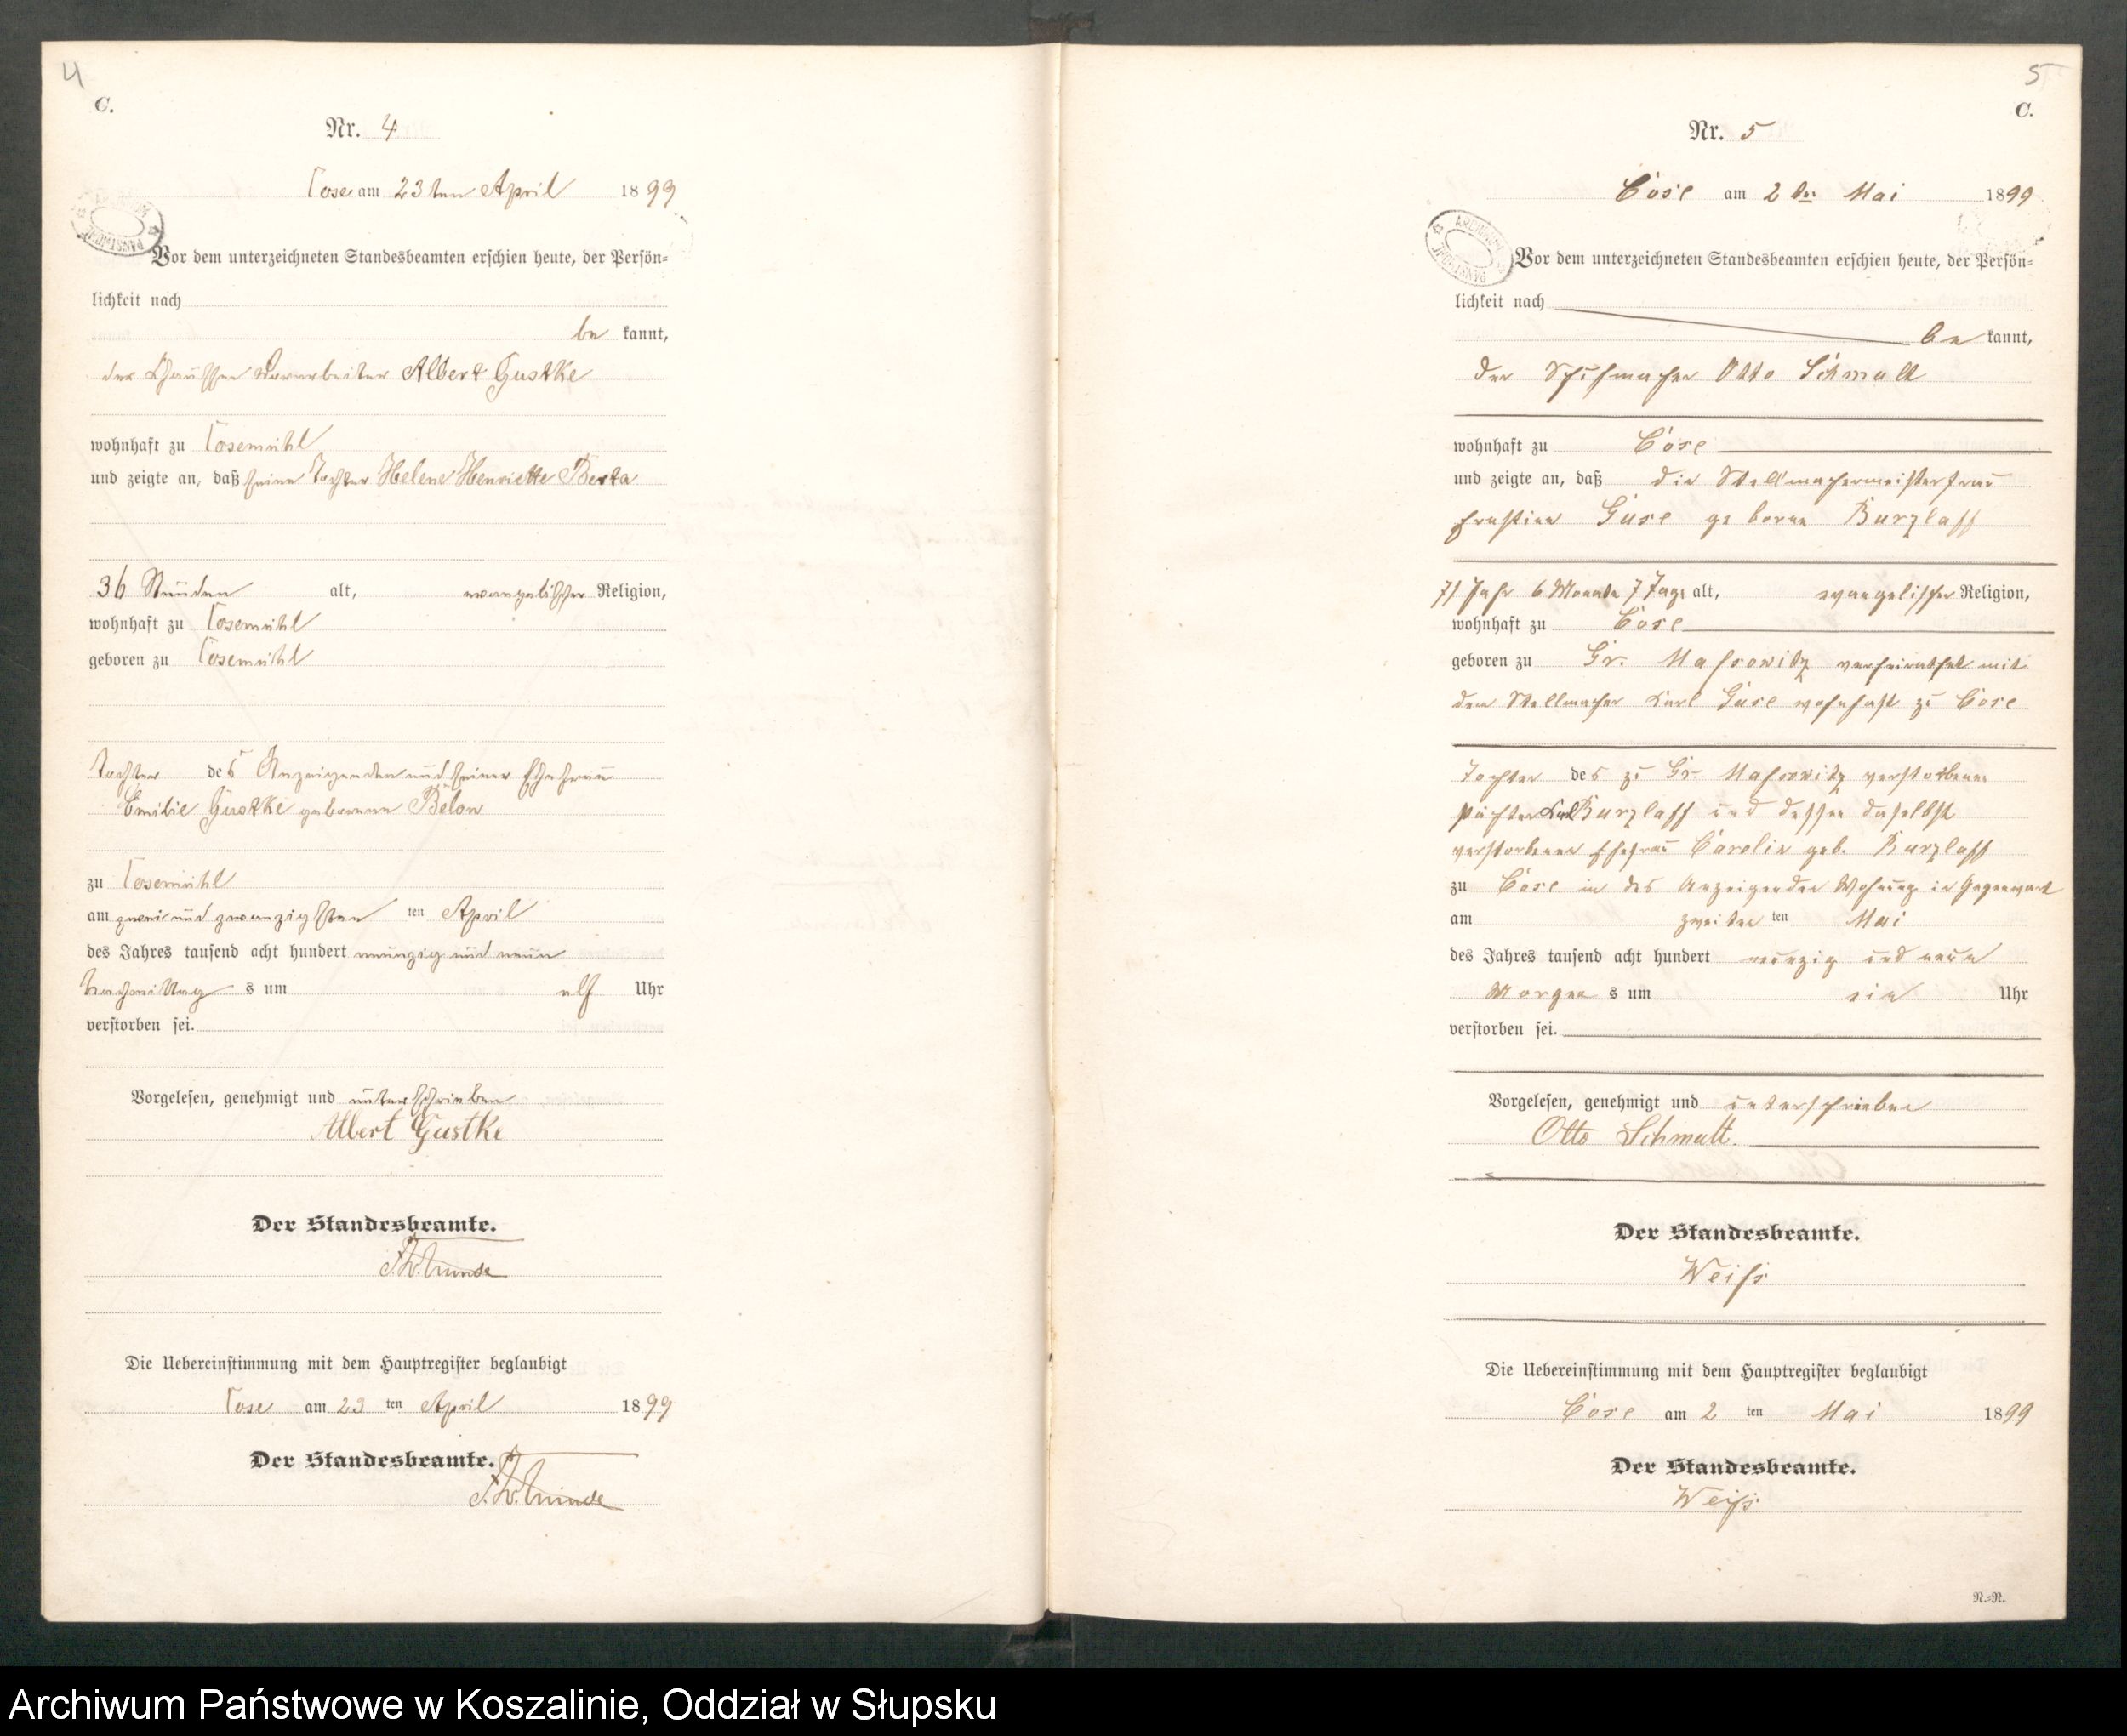 4
C.
Nr. 4
Cose am 23ten April 1899
Vor dem unterzeichneten Standesbeamten erschien heute, der Persön-
lichkeit nach
be kannt,
der Chaussee Vorarbeiter Albert Gustke
wohnhaft zu Cosemühl
und zeigte an, daß seine Tochter Helene Henriette Berta
36 Stunden alt, evangelischer Religion,
wohnhaft zu Cosemühl
geboren zu Cosemühl
Tochter des Anzeigenden und seiner Ehefrau
Emilie Gustke geborene Below
zu Cosemühl
am zwei und zwanzigsten ten April
des Jahres tausend acht hundert neunzig und neun
Nachmittag s um elf Uhr
verstorben sei.
Vorgelesen, genehmigt und unterschrieben
Albert Gustke
Der Standesbeamte.
Die Uebereinstimmung mit dem Hauptregister beglaubigt
Cose am 23 ten April 1899
Der Standesbeamte.
5
C.
Nr. 5
Cose am 2 ten Mai 1899
Vor dem unterzeichneten Standesbeamten erschien heute, der Persön-
lichkeit nach
be kannt,
der Schuhmacher Otto Schmalt
wohnhaft zu Cose
und zeigte an, daß die Stellmachermeisterfrau
Ernstine Guse ge borne Burzlaff
71 Jahr 6 Monate 7 Tage alt, evangelischer Religion,
wohnhaft zu Cose
geboren zu Gr. Massowitz verheirathet mit
dem Stellmacher Karl Guse wohnhaft zu Cose
Tochter des zu Gr. Massowitz verstorbenen
Pächter Karl Burzlaff und dessen daselbst
verstorbenen Ehefrau Carolin geb. Burzlaff
zu Cose in des Anzeigenden Wohnung in Gegenwart
am zweiten ten Mai
des Jahres tausend acht hundert neunzig und neun
Morgen s um ein Uhr
verstorben sei.
Vorgelesen, genehmigt und unterschrieben
Otto Schmalt.
Der Standesbeamte.
Weiß
Die Uebereinstimmung mit dem Hauptregister beglaubigt
Cose am 2 ten Mai 1899
Der Standesbeamte.
Weiß
N.=N.
Archiwum Państwowe w Koszalinie, Oddział w Słupsku